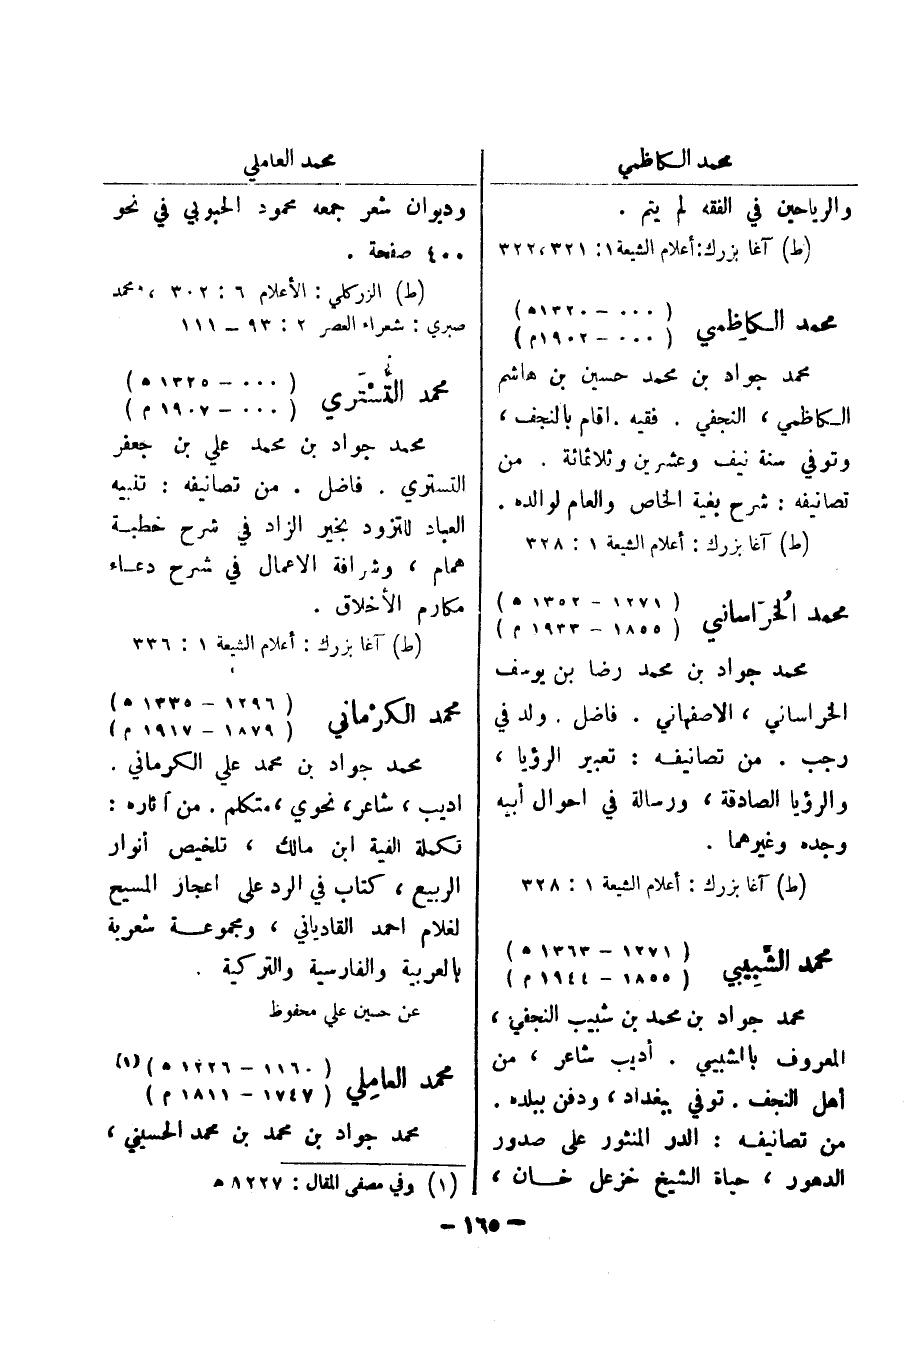 محمد الكاظمي
والرياحين في الفقه لم يتم .
(ط) آغا بزرك: أعلام الشيعة ١: ٣٢١، ٣٢٢
محمد الكاظمي
( ٠٠٠ – ١٣٢٠ه )
( ٠٠٠ – ١٩٠٢م )
محمد جواد بن محمد حسين بن هاشم
الكاظمي ، النجفي . فقيه . اقام بالنجف ،
وتوفي سنة نيف وعشرين وثلاثمائة . من
تصانيفه : شرح بغية الخاص والعام لوالده .
(ط) آغا بزرك : أعلام الشيعة ١ : ٣٢٨
محمد الخُرَاساني
( ١٢٧١ – ١٣٥٢ ه )
( ١٨٥٥ – ١٩٣٣ م )
محمد جواد بن محمد رضا بن يوسف
الخراساني ، الاصفهاني . فاضل . ولد في
رجب . من تصانيفه : تعبير الرؤيا ،
والرؤيا الصادقة ، ورسالة في احوال أبيه
وجده وغيرهما .
(ط) آغا بزرك : أعلام الشيعة ١ : ٣٢٨
محمد الشَّبِيبي
( ١٢٧١ – ١٣٦٣ ه )
( ١٨٥٥ – ١٩٤٤ م )
محمد جواد بن محمد بن شبيب النجفي ،
المعروف بالشبيبي . أديب شاعر ، من
أهل النجف . توفي ببغداد ، ودفن ببلده .
من تصانيفه : الدر المنثور على صدور
الدهور ، حياة الشيخ خزعل خان ،
محمد العاملي
وديوان شعر جمعه محمود الحبوبي في نحو
٤٠٠ صفحة .
(ط) الزركلي : الأعلام ٦ : ٣٠٢ ، محمد
صبري : شعراء العصر ٢ : ٩٣ – ١١١
محمد التُّسْتَري
( ٠٠٠ – ١٣٢٥ ه )
( ٠٠٠ – ١٩٠٧ م )
محمد جواد بن محمد علي بن جعفر
التستري . فاضل . من تصانيفه : تنبيه
العباد للتزود بخير الزاد في شرح خطبة
همام ، وشرافة الاعمال في شرح دعاء
مكارم الأخلاق .
(ط) آغا بزرك : أعلام الشيعة ١ : ٣٣٦
محمد الكرْماني
( ١٢٩٦ – ١٣٣٥ ه )
( ١٨٧٩ – ١٩١٧ م )
محمد جواد بن محمد علي الكرماني .
اديب ، شاعر ، نحوي ، متكلم . من آثاره :
تكملة الفية ابن مالك ، تلخيص أنوار
الربيع ، كتاب في الرد على اعجاز المسيح
لغلام احمد القادياني ، ومجموعة شعرية
بالعربية والفارسية والتركية .
عن حسين علي محفوظ
محمد العاملي
( ١١٦٠ – ١٢٢٦ ه ) (١)
( ١٧٤٧ – ١٨١١ م )
محمد جواد بن محمد بن محمد الحسيني ،
(١) وفي مصفى المقال : ١٢٢٧ ه
– ١٦٥ –